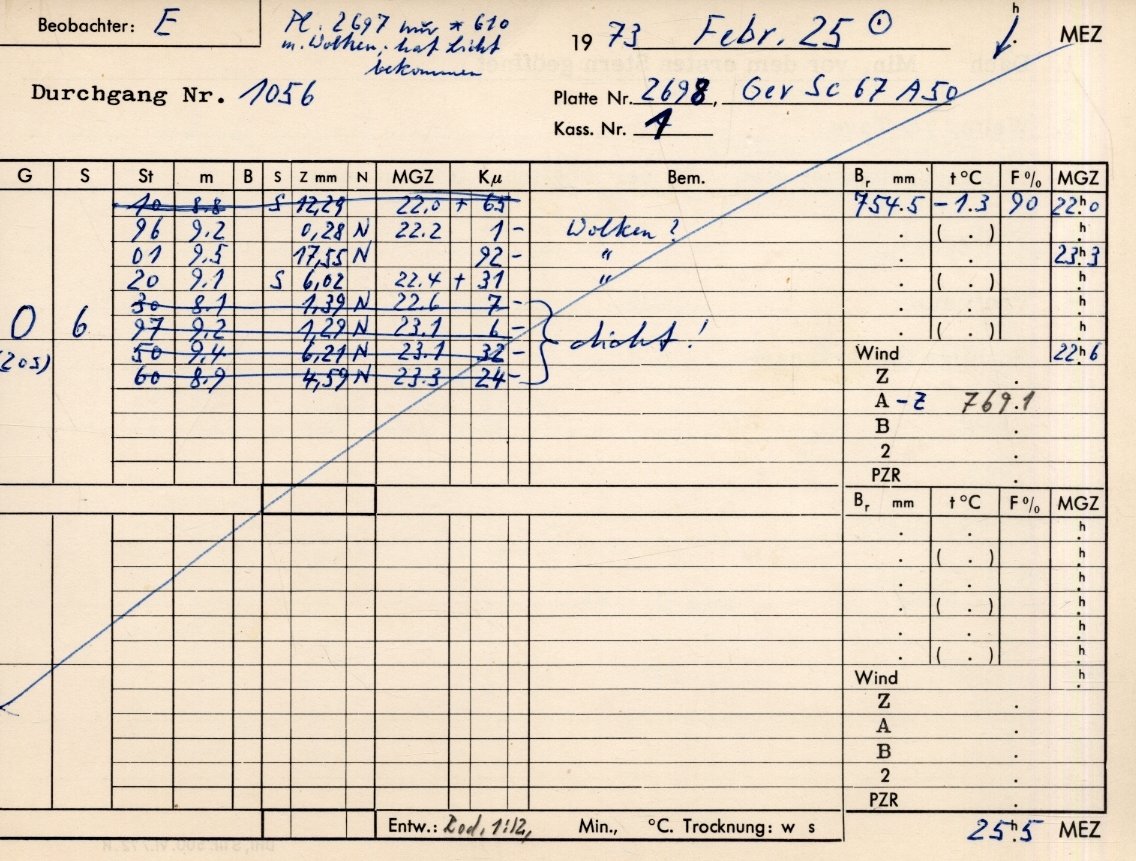 Beobachter: E
Pl. 2697 nur * 610
m. Wolken, hat Licht
bekommen
19 73 Febr. 25 ⊙ h . MEZ
Durchgang Nr. 1056
Platte Nr. 2698, Gev Sc 67 A50
Kass. Nr. 1
G S St m B S Z mm N MGZ Kμ Bem. Br mm t °C F % MGZ
10 8.8 S 12,29 22.0 + 65 754.5 -1.3 90 22h0
96 9.2 0,28 N 22.2 1 - Wolken? . ( . ) h.
01 9.5 17,55 N 92 - " . . 23h3
20 9.1 S 6,02 22.4 + 31 " . ( . ) h.
30 8.1 1,39 N 22.6 7 - . . h.
0 6 97 9.2 1,29 N 23.1 6 - dicht! . ( . ) h.
(203) 50 9.4 6,21 N 23.1 32 - Wind 22h6
60 8.9 4,59 N 23.3 24 - Z .
A - Z 769.1
B .
2 .
PZR .
Br mm t °C F % MGZ
. . h.
. ( . ) h.
. . h.
. ( . ) h.
. . h.
. ( . ) h.
Wind h.
Z .
A .
B .
2 .
PZR .
Entw.: Rod. 1:12, Min., °C. Trocknung: w s 25h5 MEZ